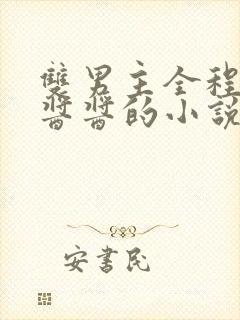 雙男主全程
醬醬的小說
安書民